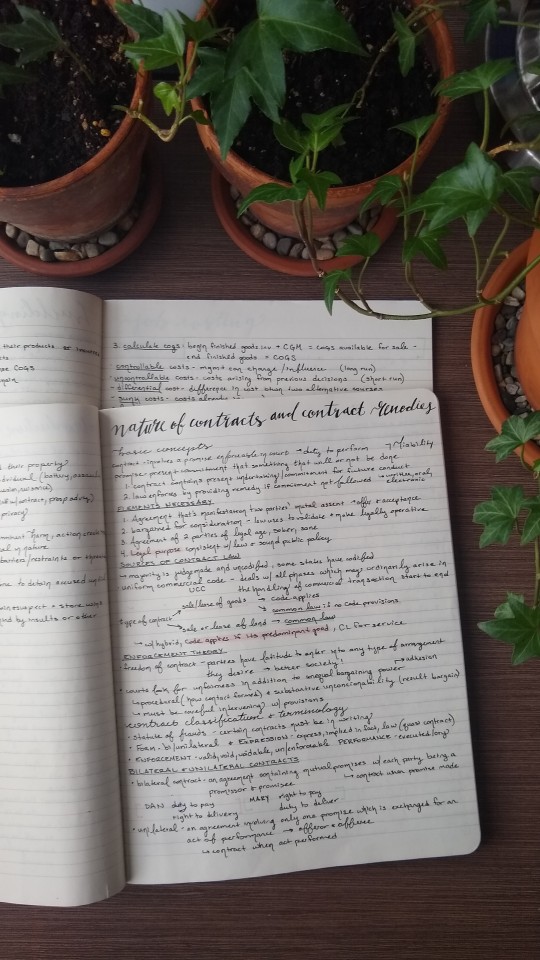 their products or
cts
se COGS
again
3. calculate cogs: begin finished goods inv + CGM = cogs available for sale -
end finished goods = COGS
controllable costs - mgmt can change/influence (long run)
uncontrollable costs: costs arising from previous decisions (short run)
differential cost - difference in cost btwn two alternative courses
sunk costs - costs already
d their property
dividual (battery, assault,
privacy)
l in nature
to detain accused
suspect + store
by insults or other
nature of contracts and contract remedies
basic concepts
contract - involves a promise enforceable in court → duty to perform → liability
promise: present commitment that something that will or not be done
1. contract contains present undertaking/commitment for future conduct
2. law enforces by providing remedy if commitment not followed → written, oral,
electronic
ELEMENTS NECESSARY
1. Agreement that's manifestation two parties' mutual assent - offer & acceptance
2. bargained for consideration - law uses to validate + make legally operative
3. Agreement of 2 parties of legal age, sober, sane
4. Legal purpose consistent w/ law + sound public policy
SOURCES OF CONTRACT LAW
→ majority is judgemade and uncodified, some states have codified
uniform commercial code - deals w/ all phases which may ordinarily arise in
UCC the handling of commercial transaction start to end
type of contract sale/lease of goods → code applies
→ common law if no code provisions
sale or lease of land → common law
→ w/ hybrid, code applies if its predominant good, CL for service
ENFORCEMENT THEORY
freedom of contract - parties have latitude to enter into any type of arrangement
they desire → better society!
courts look for unfairness in addition to unequal bargaining power → adhesion
↳ procedural (how contact formed) & substantive unconcionability (result bargain)
→ must be careful intervening w/ provisions
contract classification & terminology
• statute of frauds - certain contracts must be in writing!
• Form: bi/unilateral • EXPRESSION - express, implied in fact, law (quasi contract)
• ENFORCEMENT - valid, void, voidable, un/enforceable PERFORMANCE: executed (ory)
BILATERAL & UNILATERAL CONTRACTS
• bilateral contract - an agreement containing mutual promises w/ each party being a
promissor & promisee ↳ contract when promise made
DAN duty to pay MARY right to pay
right to delivery duty to deliver
• unilateral - an agreement involving only one promise which is exchanged for an
act of performance → offeror & offeree
↳ contract when act performed